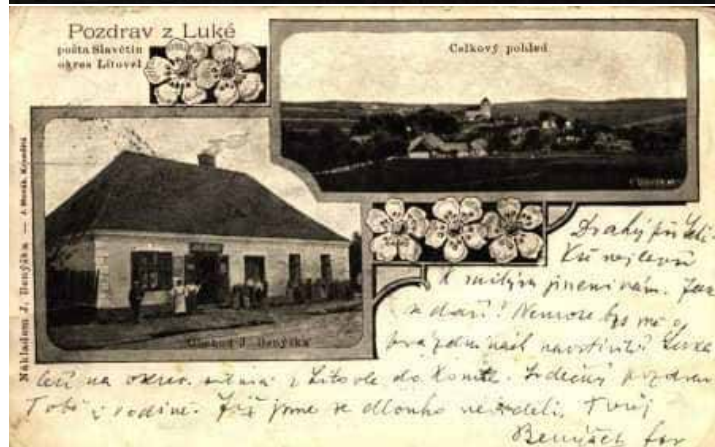 Pozdrav z Luké
pošta Slavětín
okres Litovel
Celkový pohled
Obchod J. Benýška
Nákladem J. Benýška — J.
Drahý příteli.
K milým jmeninám. Jak
se daří? Nemohl bys mě o
prázdninách navštívit? Luká
leží na okres. silnici z Litovle do Konice. Srdečný pozdrav
Tobě i rodině. Již jsme se dlouho neviděli. Tvůj